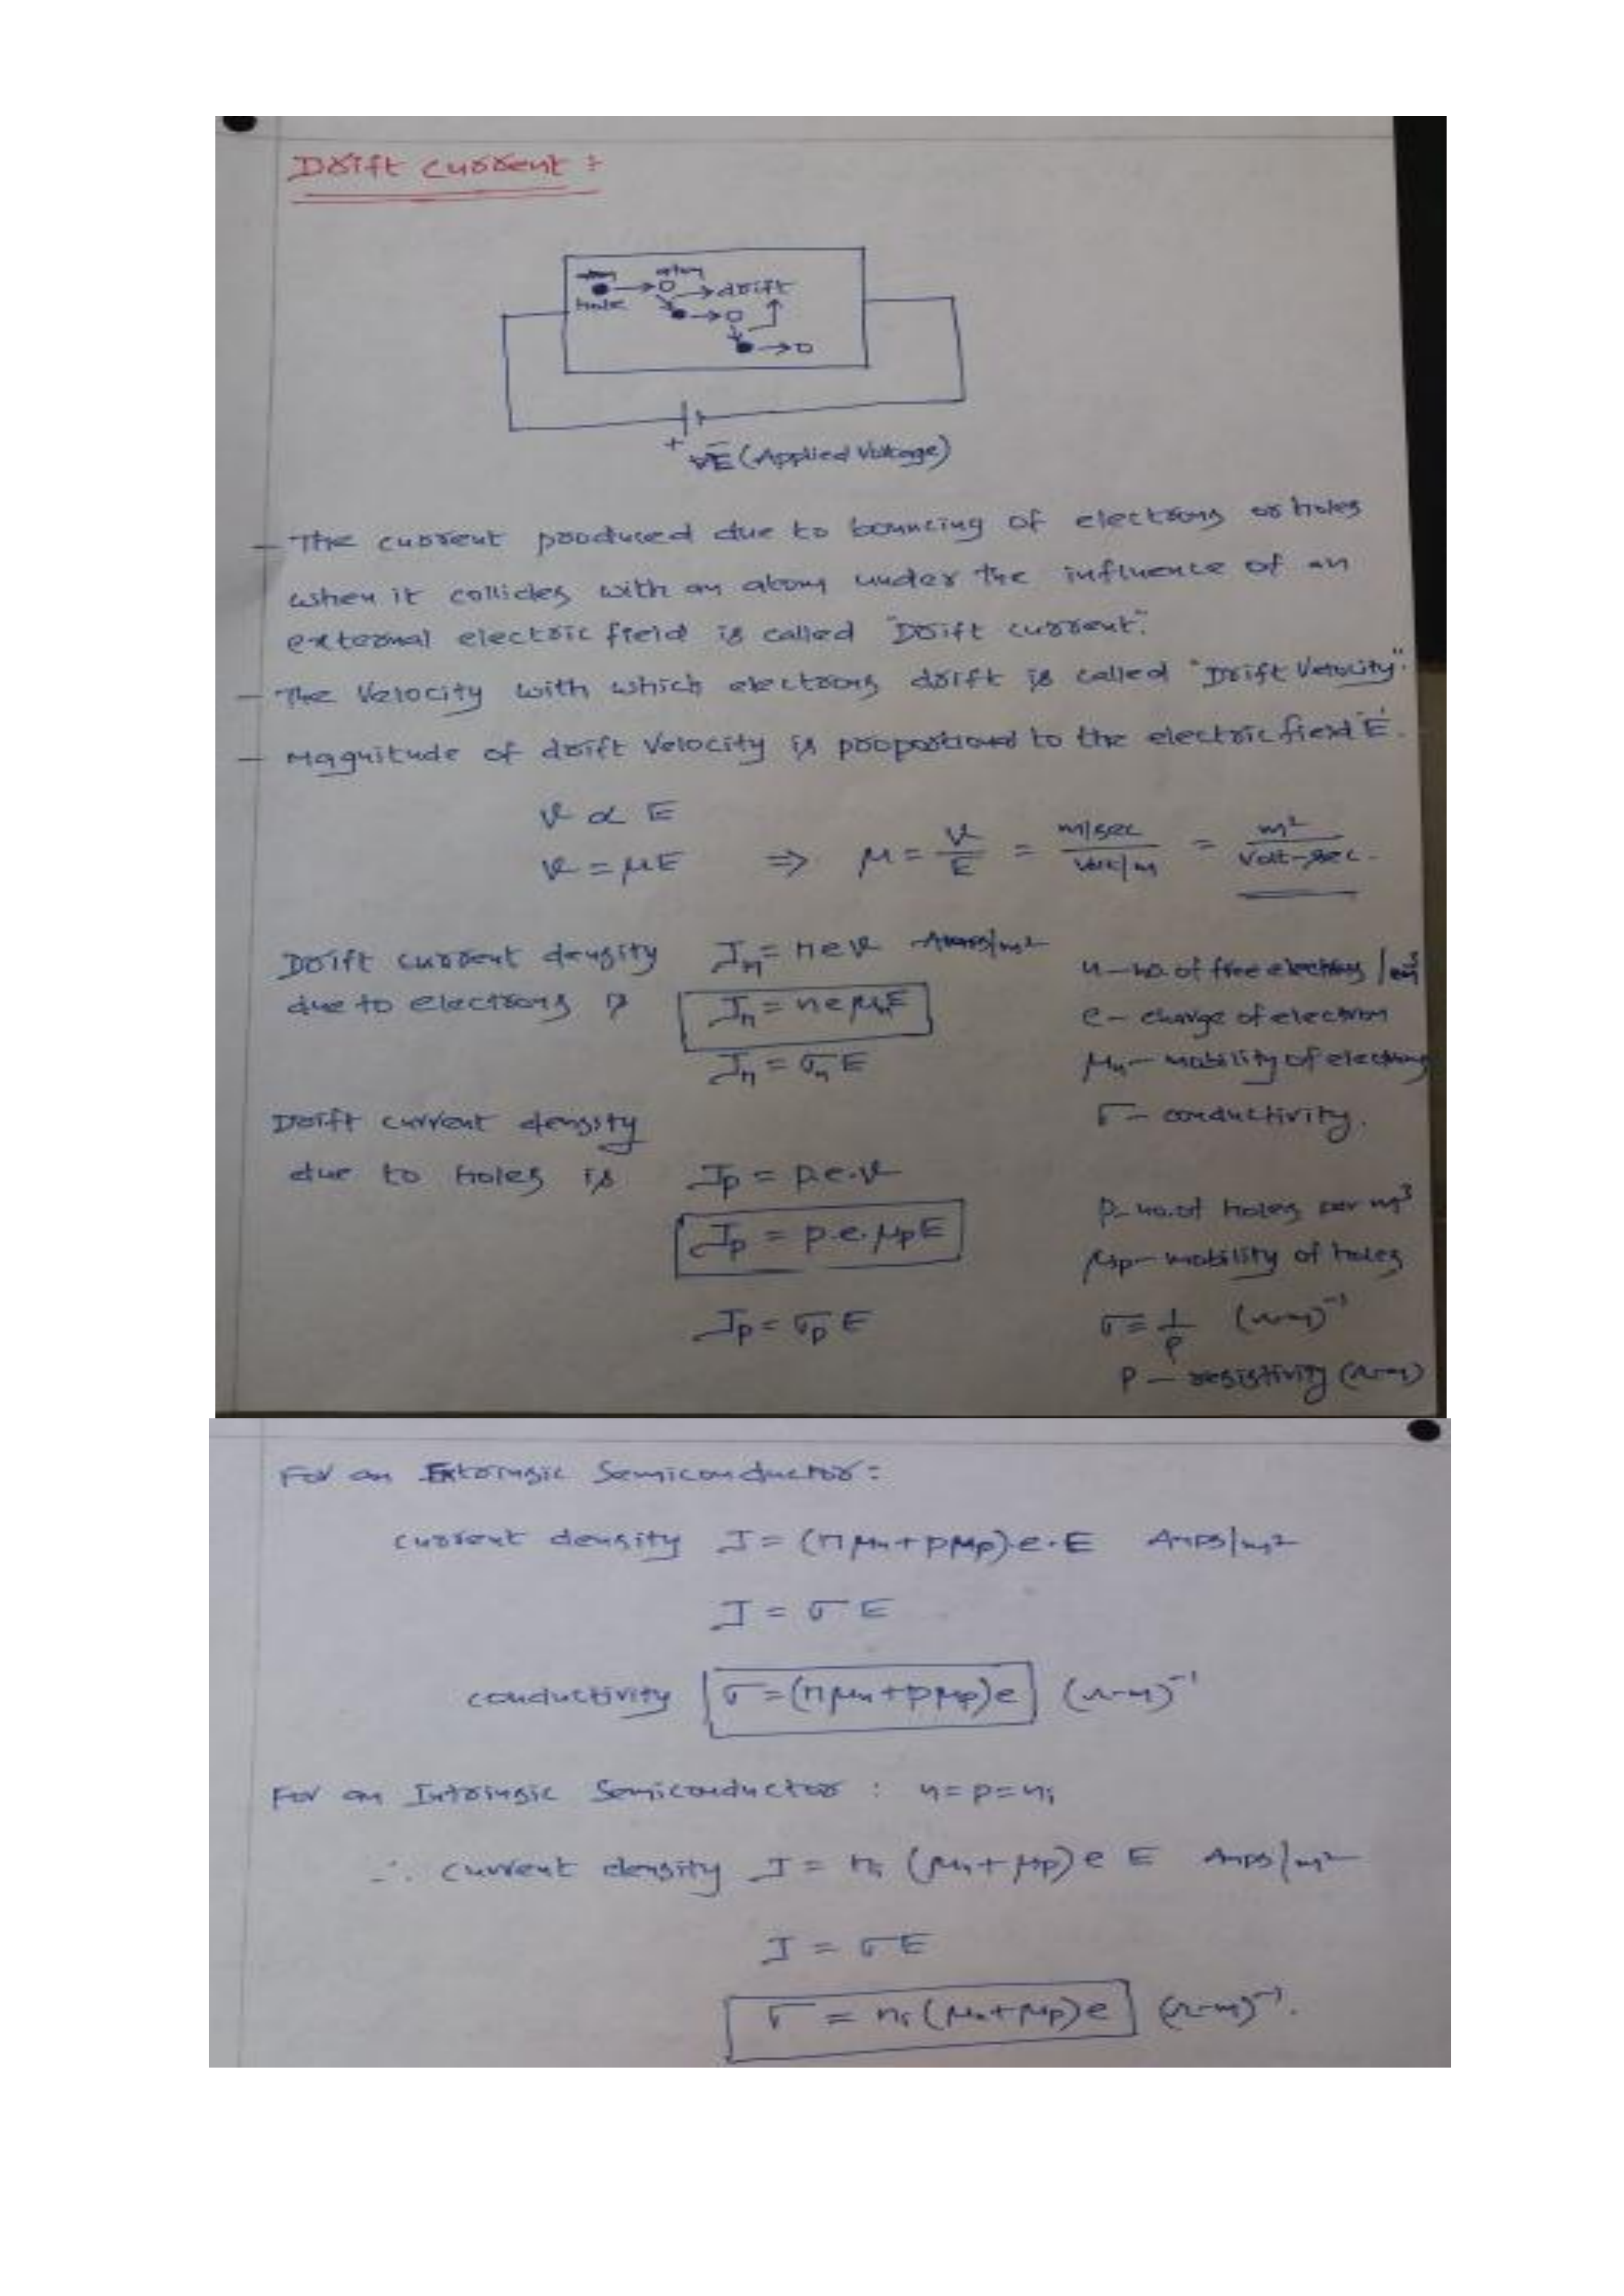 Drift current :
atom
hole
→ drift
+ -
E (Applied Voltage)
- The current produced due to bouncing of electrons or holes
when it collides with an atom under the influence of an
external electric field is called "Drift current".
- The Velocity with which electrons drift is called "Drift Velocity".
- Magnitude of drift Velocity is proportional to the electric field 'E'.
v ∝ E
v = μE ⇒ μ = v/E = m/sec / volt/m = m² / Volt-sec.
Drift current density Jn = nev Amps/m²
due to electrons is Jn = neμnE
Jn = σnE
n - no. of free electrons /m³
e - charge of electron
μn - mobility of electrons
σ - conductivity.
Drift current density
due to holes is Jp = p.e.v
Jp = p.e.μpE
Jp = σpE
p - no. of holes per m³
μp - mobility of holes
σ = 1/ρ (Ω-m)⁻¹
ρ - resistivity (Ω-m)
For an Extrinsic Semiconductor:
current density J = (nμn + pμp).e.E Amps/m²
J = σE
conductivity σ = (nμn + pμp)e (Ω-m)⁻¹
For an Intrinsic Semiconductor : n = p = ni
∴ current density J = ni (μn + μp) e E Amps/m²
J = σE
σ = ni (μn + μp)e (Ω-m)⁻¹.